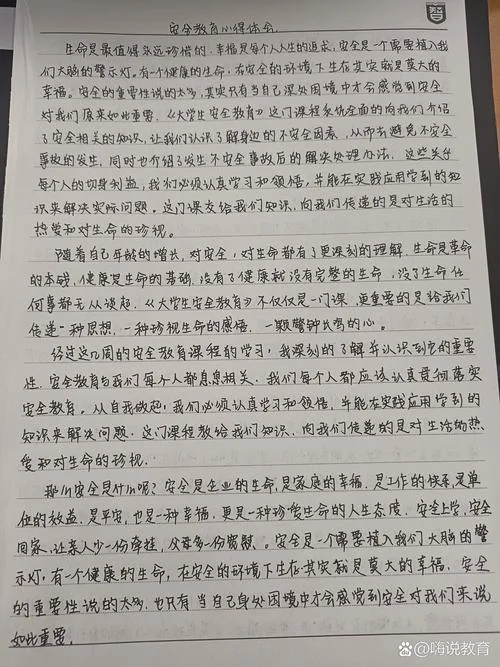 安全教育心得体会
生命是最值得永远珍惜的，幸福是每个人人生的追求，安全是一个需要植入我
们大脑的警示灯。有一个健康的生命，在安全的环境下生存其实就是莫大的
幸福。安全的重要性说的太多，其实只有当自己深处困境中才会感觉到安全
对我们原来如此重要。《大学生安全教育》这门课程系统全面的向我们介绍
了安全相关的知识，让我们认识了解身边的不安全因素，从而去避免不安全
事故的发生，同时也介绍了发生不安全事故后的解决处理办法，这些关乎
每个人的切身利益，我们必须认真学习和领悟，并能在实践应用学到的知
识来解决实际问题。这门课交给我们知识，向我们传递的是对生活的
热爱和对生命的珍视。
随着自己年龄的增长，对安全，对生命都有了更深刻的理解，生命是革命
的本钱，健康是生命的基础，没有了健康就没有完整的生命，没了生命任
何事都无从谈起，《大学生安全教育》不仅仅是一门课，更重要的是给我们
传递一种思想，一种珍视生命的感悟，一颗警钟长鸣的心。
经过这几周的安全教育课程的学习，我深刻的了解并认识到它的重要
性，安全教育与我们每个人都息息相关，我们每个人都应该认真贯彻落实
安全教育。从自我做起，我们必须认真学习和领悟，并能在实践应用学到的
知识来解决问题，这门课程教给我们知识，向我们传递的是对生活的热
爱和对生命的珍视.
那么安全是什么呢？安全是企业的生命，是家庭的幸福，是工作的快乐，是单
位的效益，是平安，也是一种幸福，更是一种珍爱生命的人生态度，安全上学，安全
回家，让亲人少一份牵挂，父母多一份宽慰。安全是一个需要植入我们大脑的警
示灯，有一个健康的生命，在安全的环境下生存其实就是莫大的幸福，安全
的重要性说的太多，也只有当自己身处困境中才会感觉到安全对我们来说
如此重要.
嗨说教育